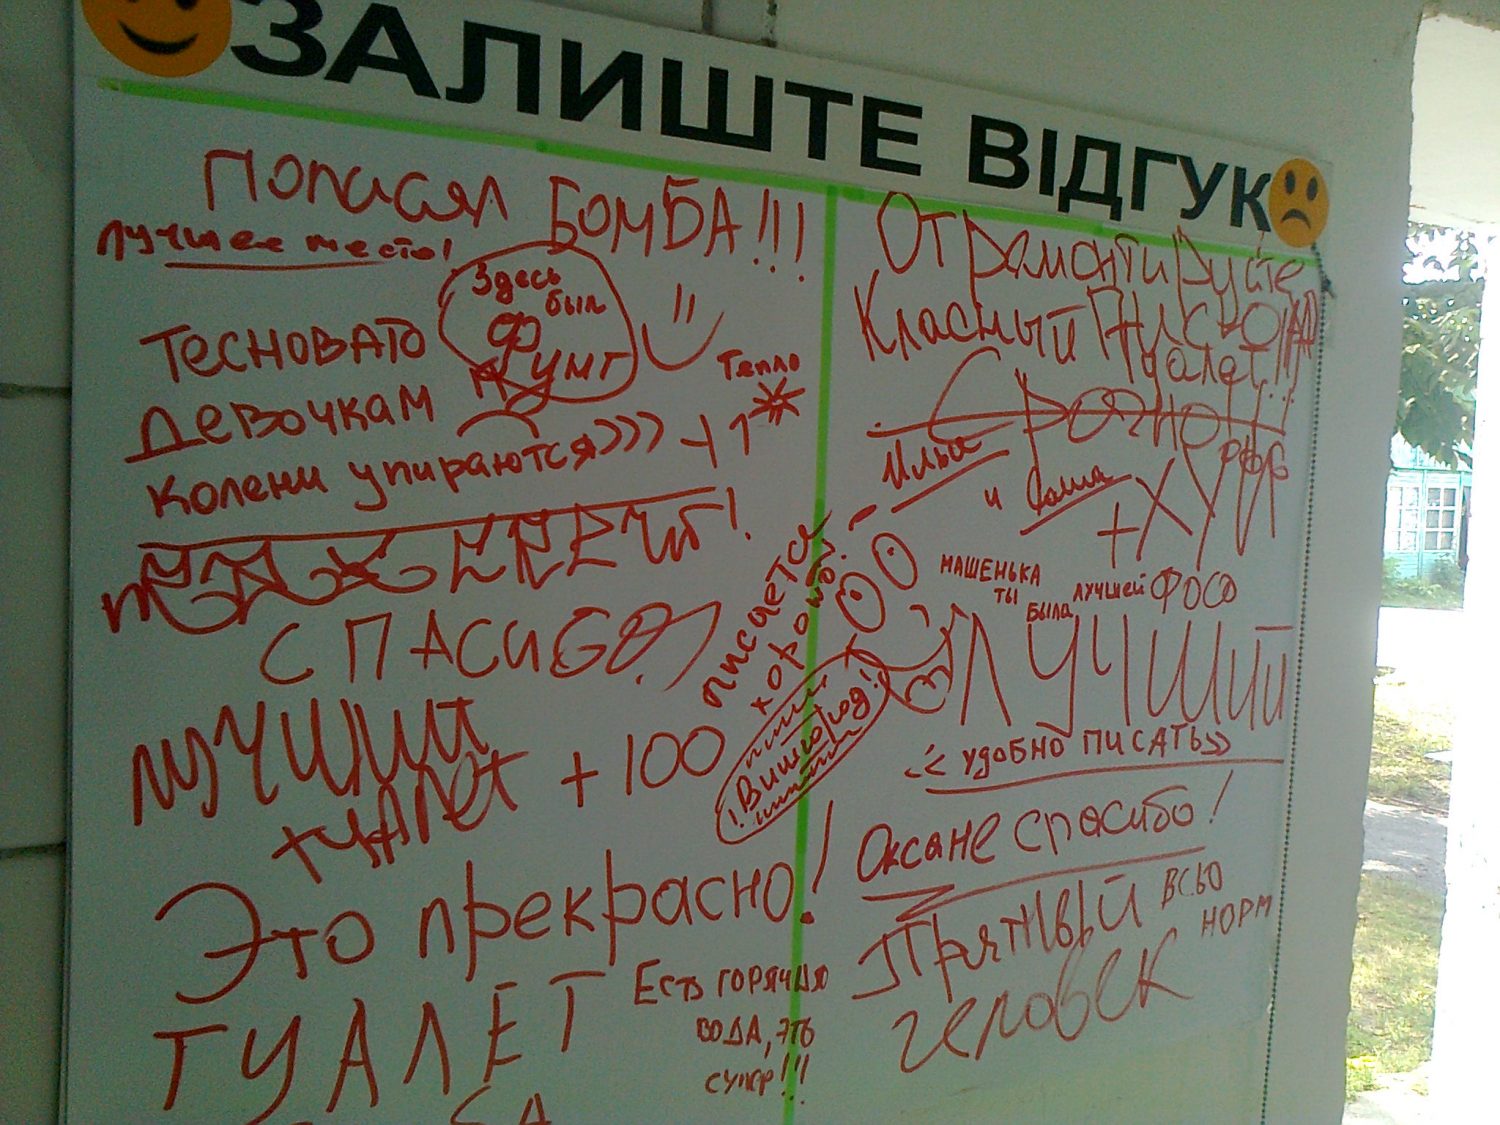 ЗАЛИШТЕ ВІДГУК
Пописял БОМБА!!!
лучшее место!
Здесь
был
Фунт
ТЕСНОВАТО
ДЕВОЧКАМ
КОЛЕНИ упираются))))
+1
Тепло
СПАСИБО
писается
хорошо!
ЛУЧШИЙ
туалет +100
!Вишгород!
Это прекрасно!
ТУАЛЕТ
ЕСТЬ ГОРЯЧАЯ
ВОДА, ЭТЬ
супер!!!
Отремонтируйте
Красный
Туалет!!!
Срочно!!
Илья
и Саша
МАШЕНЬКА
ТЫ
БЫЛА
ЛУЧШЕЙ ФОСО
ЛУЧШИЙ
<<УДОБНО ПИСАТЬ>>
Оксане спасибо!
ВСЬО
НОРМ
человек